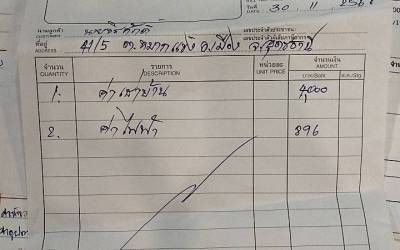 วันที่ 30 / 11 / 256
นามลูกค้า
ที่อยู่ ADDRESS 41/5 ต.หมากแข้ง อ.เมือง จ.อุดรธานี
จำนวน QUANTITY รายการ DESCRIPTION หน่วยละ UNIT PRICE จำนวนเงิน AMOUNT
บาท/Baht ส.ต./Stg.
1. ค่าเช่าบ้าน 4000
2. ค่าไฟฟ้า 896